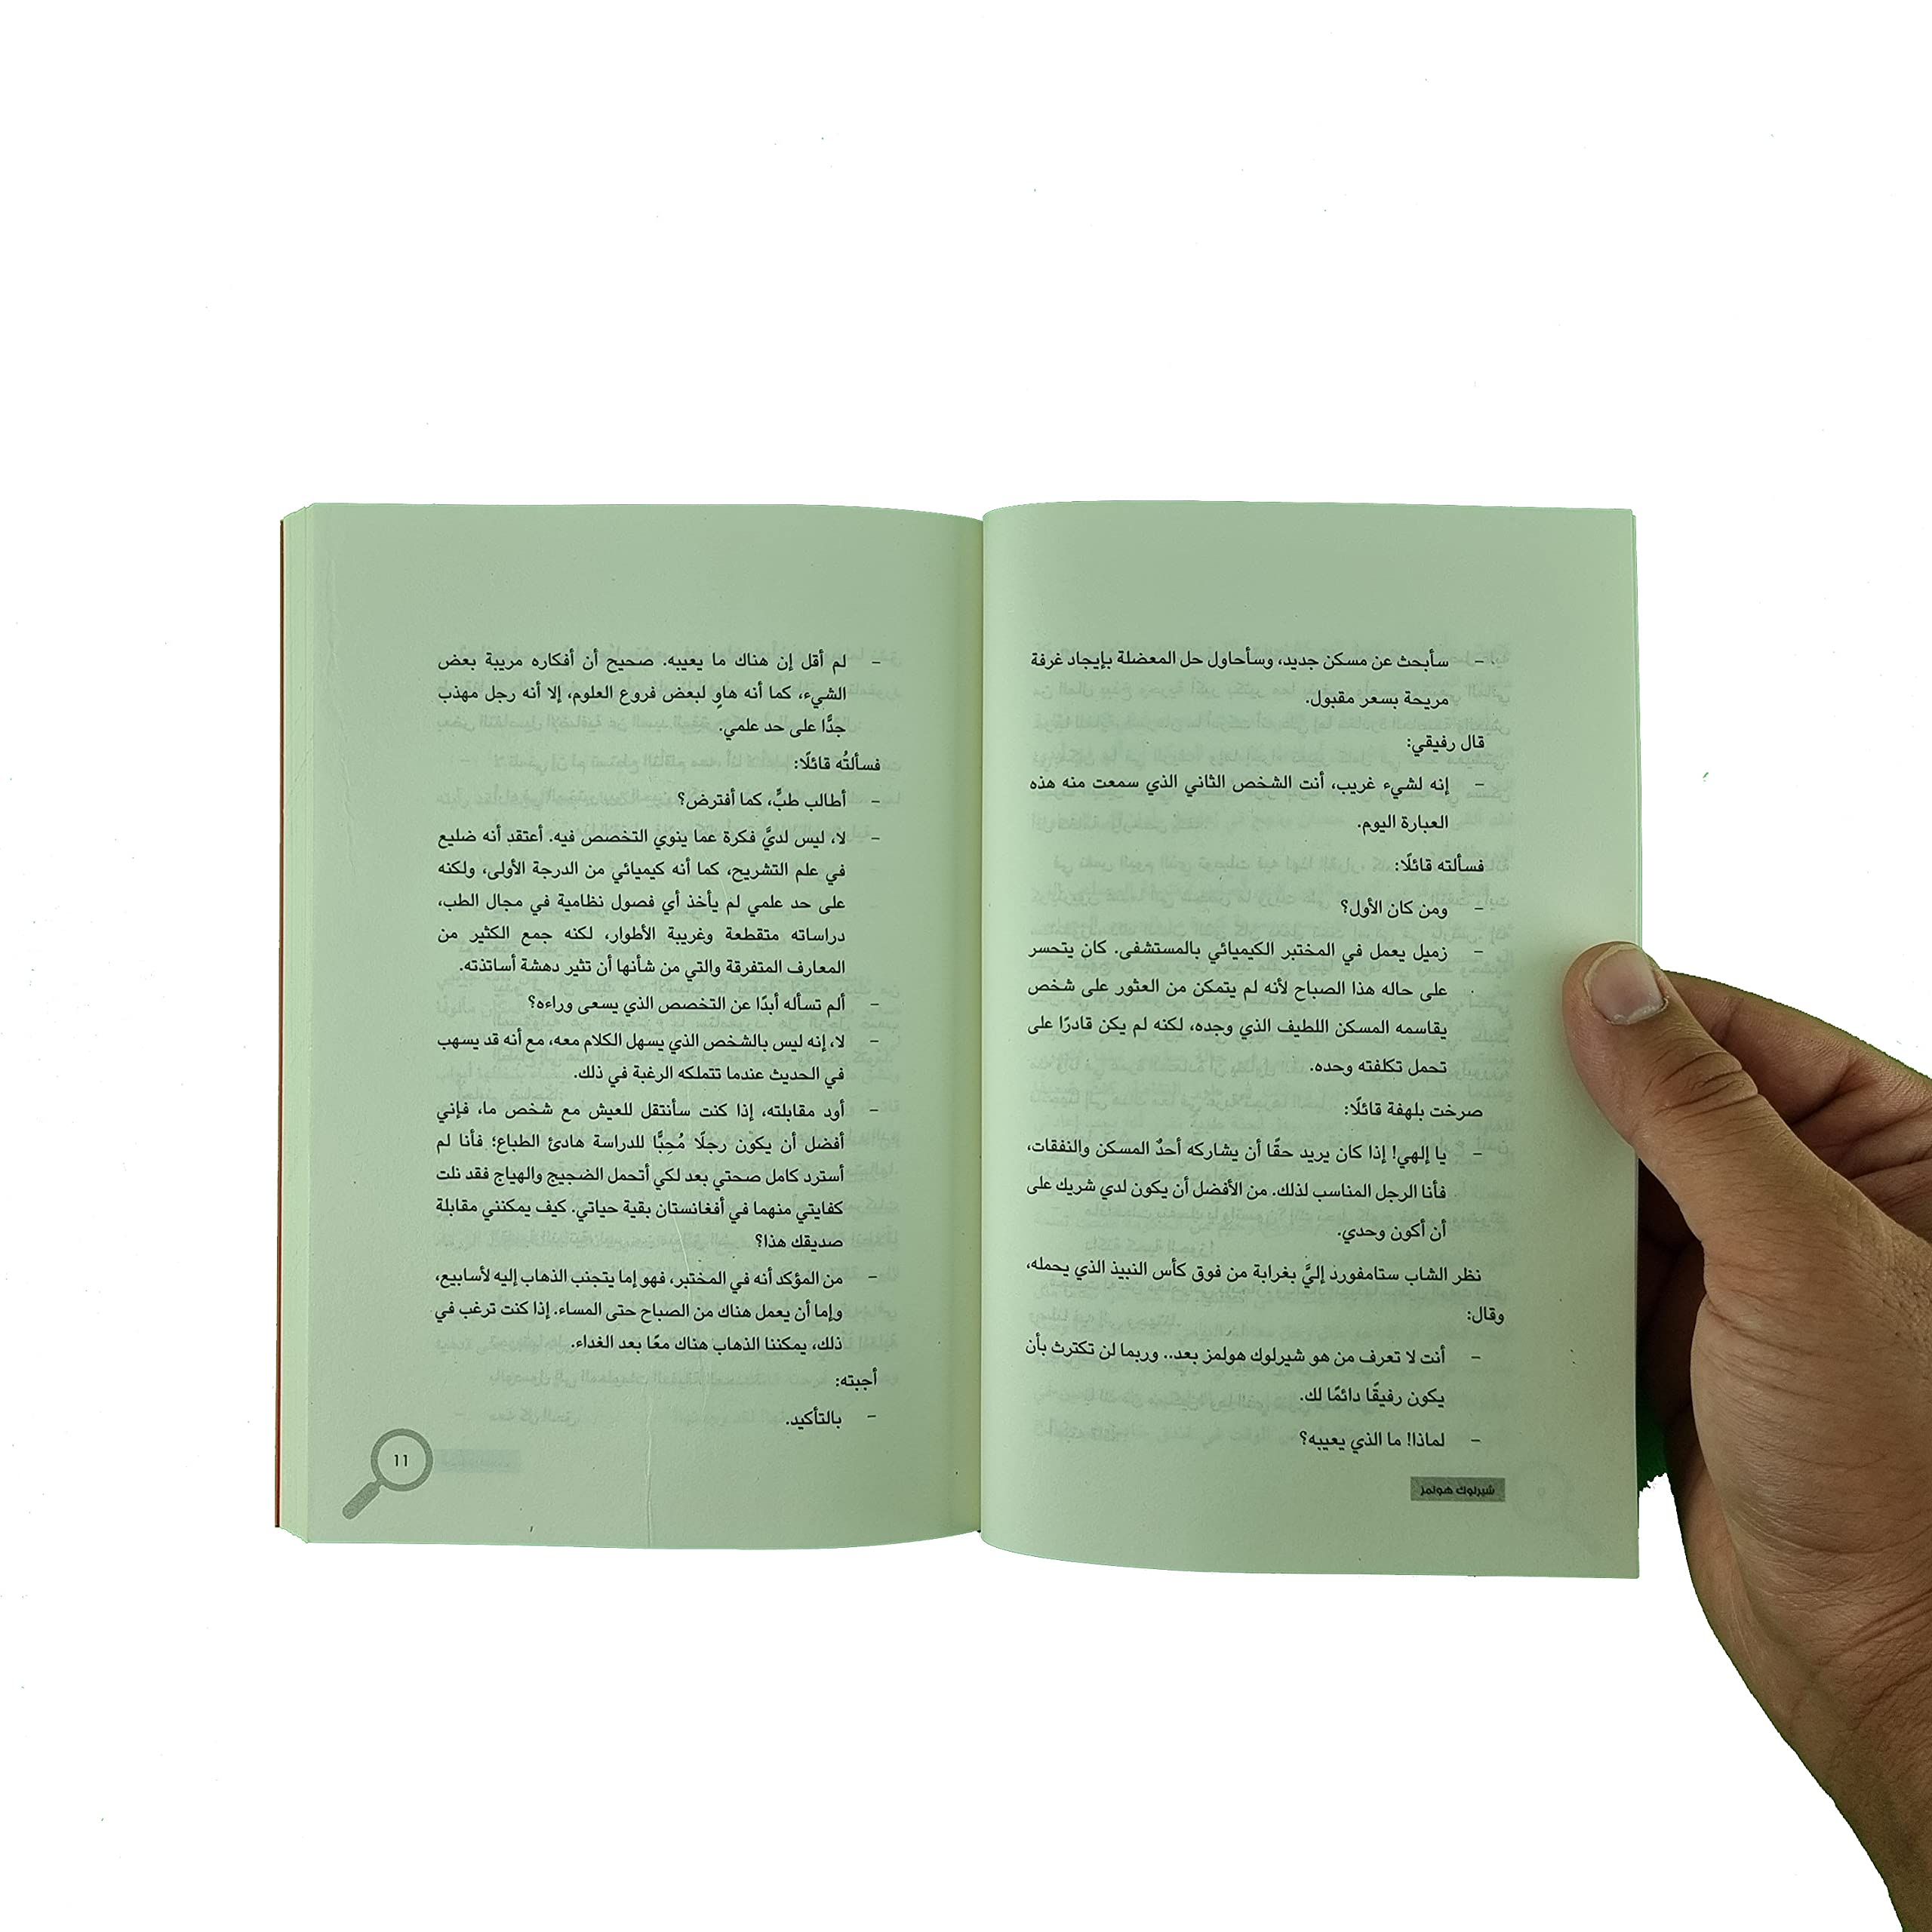 – سأبحث عن مسكن جديد، وسأحاول حل المعضلة بإيجاد غرفة
مريحة بسعر مقبول.
قال رفيقي:
– إنه لشيء غريب، أنت الشخص الثاني الذي سمعت منه هذه
العبارة اليوم.
فسألته قائلًا:
– ومن كان الأول؟
– زميل يعمل في المختبر الكيميائي بالمستشفى. كان يتحسر
على حاله هذا الصباح لأنه لم يتمكن من العثور على شخص
يقاسمه المسكن اللطيف الذي وجده، لكنه لم يكن قادرًا على
تحمل تكلفته وحده.
صرخت بلهفة قائلًا:
– يا إلهي! إذا كان يريد حقًا أن يشاركه أحدٌ المسكن والنفقات،
فأنا الرجل المناسب لذلك. من الأفضل أن يكون لدي شريك على
أن أكون وحدي.
نظر الشاب ستامفورد إليَّ بغرابة من فوق كأس النبيذ الذي يحمله،
وقال:
– أنت لا تعرف من هو شيرلوك هولمز بعد.. وربما لن تكترث بأن
يكون رفيقًا دائمًا لك.
– لماذا! ما الذي يعيبه؟
شيرلوك هولمز
– لم أقل إن هناك ما يعيبه. صحيح أن أفكاره مريبة بعض
الشيء، كما أنه هاوٍ لبعض فروع العلوم، إلا أنه رجل مهذب
جدًّا على حد علمي.
فسألتُه قائلًا:
– أطالب طبٍّ، كما أفترض؟
– لا، ليس لديَّ فكرة عما ينوي التخصص فيه. أعتقد أنه ضليع
في علم التشريح، كما أنه كيميائي من الدرجة الأولى، ولكنه
على حد علمي لم يأخذ أي فصول نظامية في مجال الطب،
دراساته متقطعة وغريبة الأطوار، لكنه جمع الكثير من
المعارف المتفرقة والتي من شأنها أن تثير دهشة أساتذته.
– ألم تسأله أبدًا عن التخصص الذي يسعى وراءه؟
– لا، إنه ليس بالشخص الذي يسهل الكلام معه، مع أنه قد يسهب
في الحديث عندما تتملكه الرغبة في ذلك.
– أود مقابلته، إذا كنت سأنتقل للعيش مع شخص ما، فإني
أفضل أن يكون رجلًا مُحِبًّا للدراسة هادئ الطباع؛ فأنا لم
أسترد كامل صحتي بعد لكي أتحمل الضجيج والهياج فقد نلت
كفايتي منهما في أفغانستان بقية حياتي. كيف يمكنني مقابلة
صديقك هذا؟
– من المؤكد أنه في المختبر، فهو إما يتجنب الذهاب إليه لأسابيع،
وإما أن يعمل هناك من الصباح حتى المساء. إذا كنت ترغب في
ذلك، يمكننا الذهاب هناك معًا بعد الغداء.
أجبته:
– بالتأكيد.
11